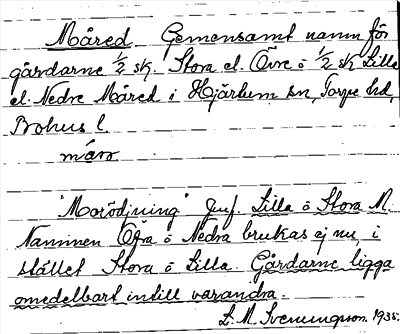 Måred Gemensamt namn för
gårdarne 1/2 sk. Stora el. Övre o 1/2 sk Lilla
el. Nedre Måred i Hjärtum sn, Torpe hd,
Bohus l.
"Morödjning" Juf. Lilla o Stora M.
Namnen Öfra o Nedra brukas ej nu, i
stället Stora o Lilla. Gårdarne ligga
omedelbart intill varandra.
L. M. Svenungson 1935.